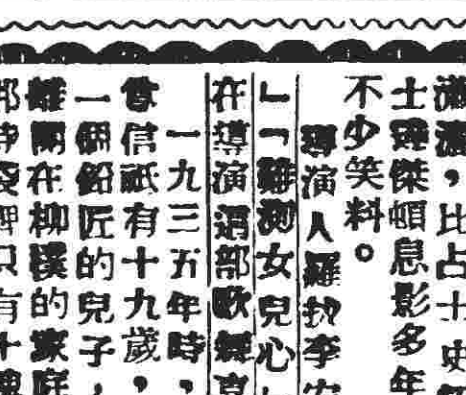 ，比占士史
士　傑頓息影多年
不少笑料。
導演人羅拔李安
」「難測女兒心」
在導演這部歌舞
一九三五年時，
曾信祇有十九歲，
一個鉛匠的兒子，
離開在柳　的家庭
只有十塊